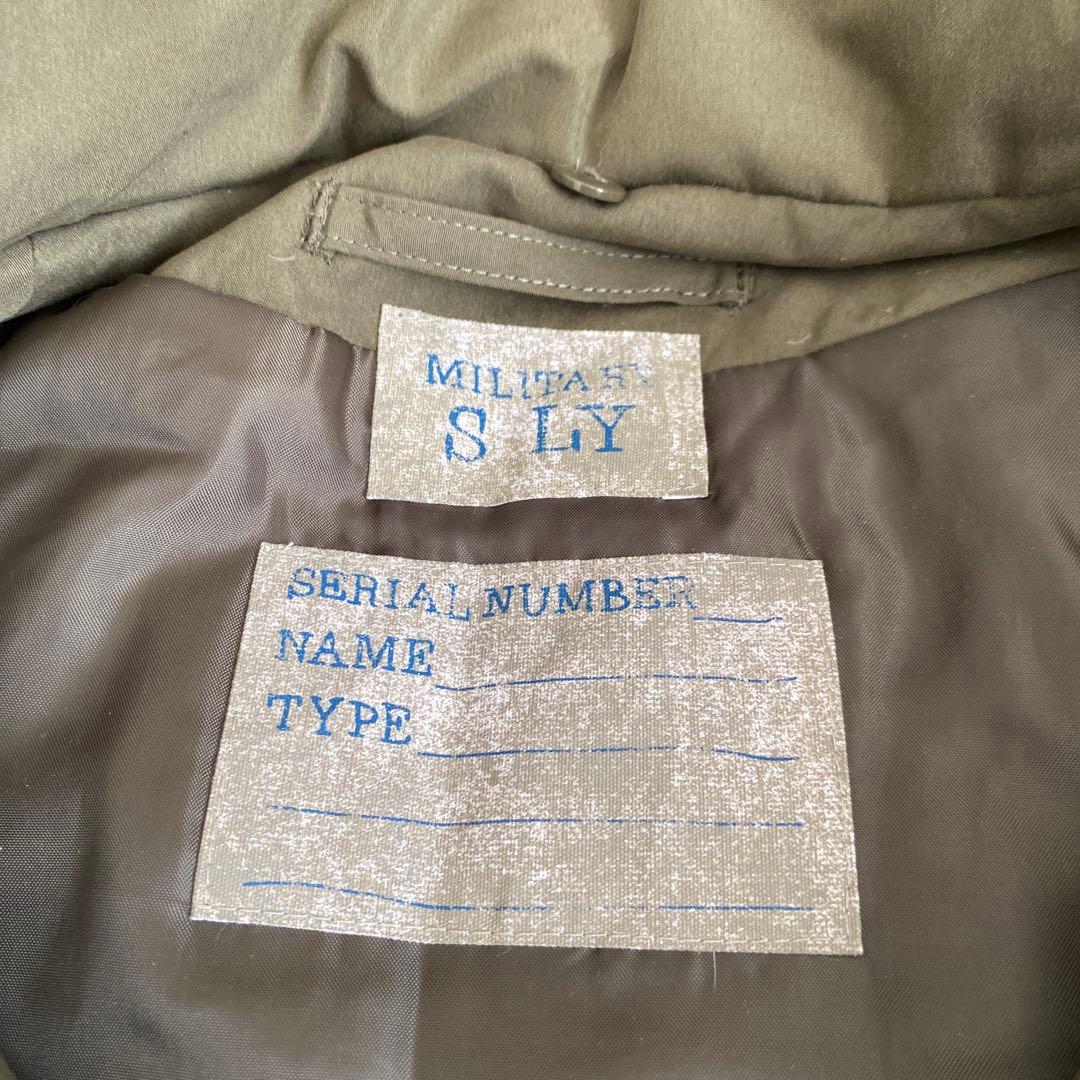 MILITARY
S LY
SERIAL NUMBER
NAME
TYPE